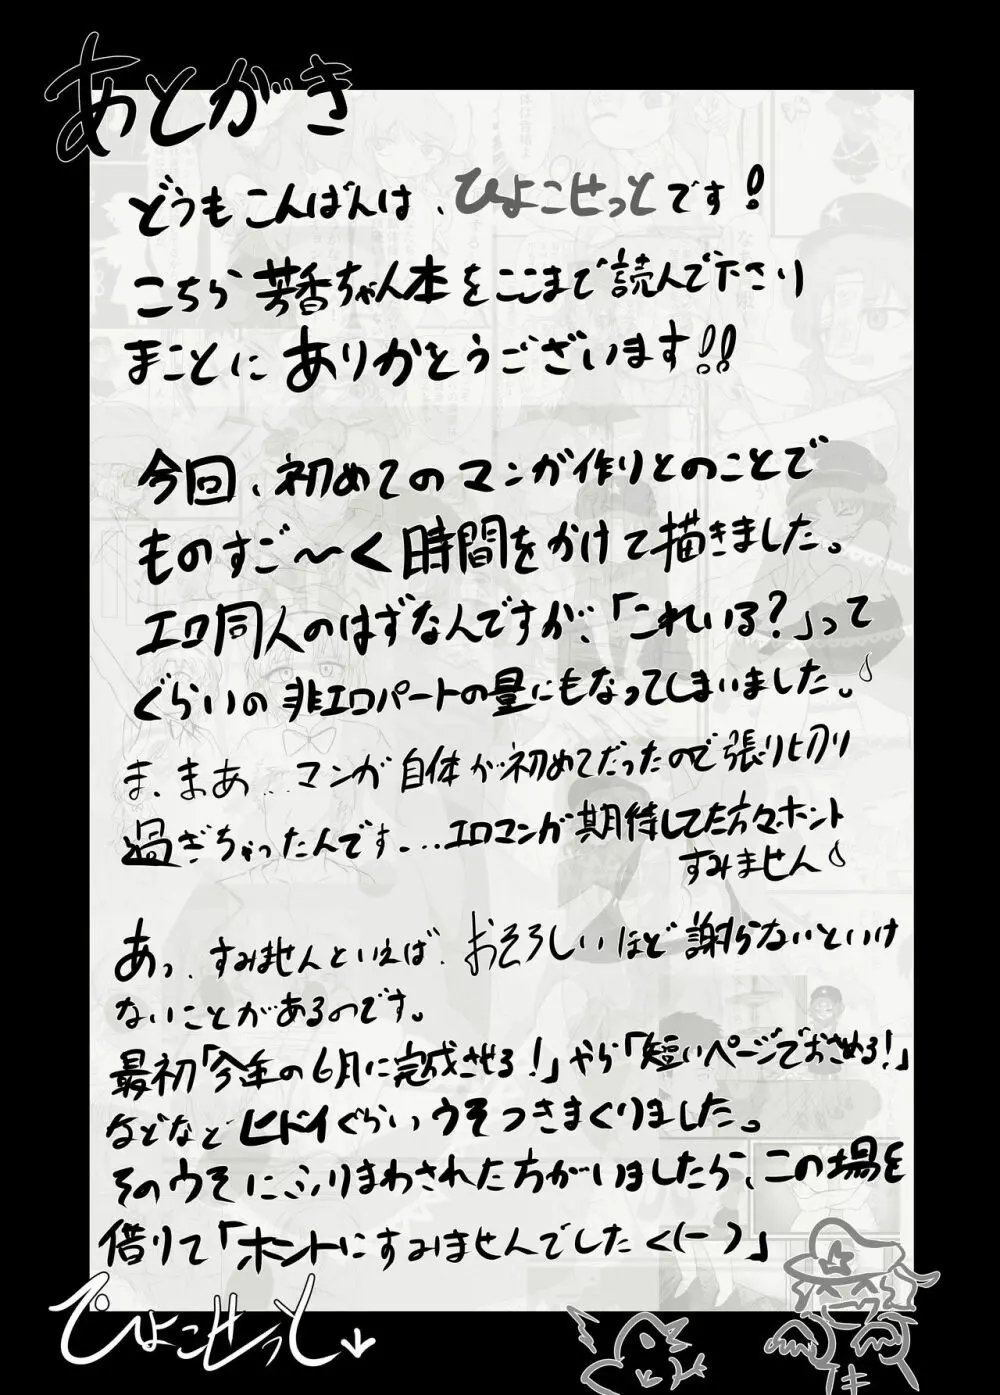 あとがき
どうもこんばんは、ひよこせっとです!
こちら芳香ちゃん本をここまで読んで下さり
まことにありがとうございます!!
今回、初めてのマンガ作りとのことで
ものすご〜く時間をかけて描きました。
エロ同人のはずなんですが、「これいる?」って
ぐらいの非エロパートの量にもなってしまいました。
ま、まあ...マンガ自体が初めてだったので張り切り
過ぎちゃったんです...エロマンガ期待してた方々ホント
すみません
あっ、すみませんといえば、おそろしいほど謝らないといけ
ないことがあるのです。
最初「今年の6月に完成させる!」やら「短いページでおさめる!」
などなどヒドイぐらいウそつきまくりました。
そのウそにふりまわされた方がいましたら、この場を
借りて「ホントにすみませんでした<(ー )」
ひよこせっと